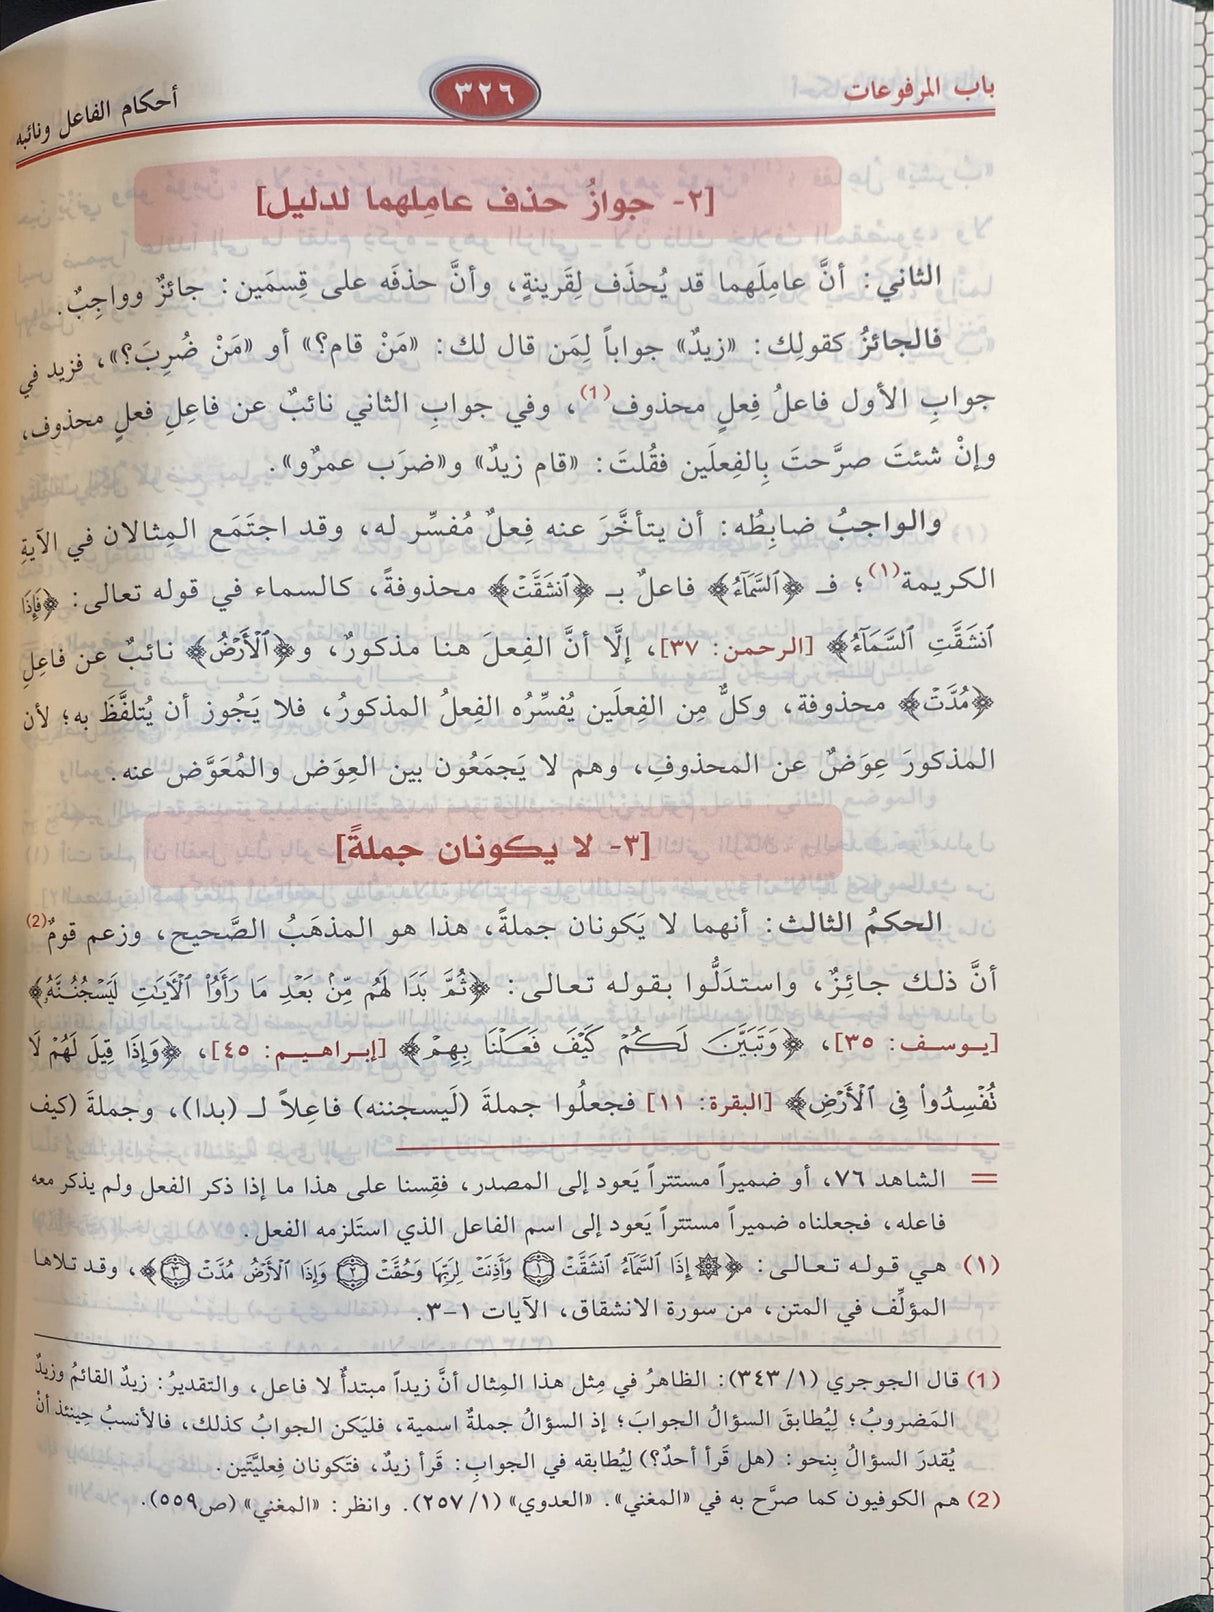 باب المرفوعات
٣٢٦
أحكام الفاعل ونائبه
[٢- جوازُ حذف عامِلهما لدليل]
الثاني: أنَّ عامِلَهما قد يُحذَف لِقَرينةٍ، وأنَّ حذفَه على قِسمَين: جائزٌ وواجِبٌ.
فالجائزُ كقولِك: «زيدٌ» جواباً لِمَن قال لك: «مَنْ قام؟» أو «مَنْ ضُرِبَ؟»، فزيد في
جوابِ الأول فاعلُ فِعلٍ محذوف(1)، وفي جوابِ الثاني نائبٌ عن فاعِلِ فعلٍ محذوف،
وإنْ شئتَ صرَّحتَ بِالفِعلَين فقُلتَ: «قام زيدٌ» و«ضرَب عمرٌو».
والواجبُ ضابِطُه: أن يتأخَّرَ عنه فِعلٌ مُفسِّر له، وقد اجتَمَع المِثالان في الآيةِ
الكريمة(١)؛ فـ ﴿ٱلسَّمَآءُ﴾ فاعلٌ بـ ﴿ٱنشَقَّتْ﴾ محذوفةً، كالسماء في قوله تعالى: ﴿فَإِذَا
ٱنشَقَّتِ ٱلسَّمَآءُ﴾ [الرحمن: ٣٧]، إلَّا أنَّ الفِعلَ هنا مذكورٌ، و﴿ٱلْأَرْضُ﴾ نائبٌ عن فاعِلِ
﴿مُدَّتْ﴾ محذوفة، وكلٌّ مِن الفِعلَين يُفسِّرُه الفِعلُ المذكورُ، فلا يَجُوز أن يُتلفَّظَ به؛ لأن
المذكورَ عِوَضٌ عن المحذوفِ، وهم لا يَجمَعُون بين العِوَض والمُعَوَّض عنه.
[٣- لا يكونان جملةً]
الحكمُ الثالث: أنهما لا يَكونان جملةً، هذا هو المذهَبُ الصَّحيح، وزعم قومٌ(2)
أنَّ ذلك جائِزٌ، واستدَلُّوا بقوله تعالى: ﴿ثُمَّ بَدَا لَهُم مِّنۢ بَعْدِ مَا رَأَوُا۟ ٱلْءَايَٰتِ لَيَسْجُنُنَّهُۥ﴾
[يوسف: ٣٥]، ﴿وَتَبَيَّنَ لَكُمْ كَيْفَ فَعَلْنَا بِهِمْ﴾ [إبراهيم: ٤٥]، ﴿وَإِذَا قِيلَ لَهُمْ لَا
تُفْسِدُوا۟ فِى ٱلْأَرْضِ﴾ [البقرة: ١١] فجعلُوا جملةَ (لَيسجننه) فاعِلاً لـ (بدا)، وجملةَ (كيف
= الشاهد ٧٦، أو ضميراً مستتراً يَعود إلى المصدر، فقِسنا على هذا ما إذا ذكر الفعل ولم يذكر معه
فاعله، فجعلناه ضميراً مستتراً يَعود إلى اسم الفاعل الذي استَلزمه الفعل.
(١) هي قوله تعالى: ﴿۞ إِذَا ٱلسَّمَآءُ ٱنشَقَّتْ ١ وَأَذِنَتْ لِرَبِّهَا وَحُقَّتْ ٢ وَإِذَا ٱلْأَرْضُ مُدَّتْ ٣﴾، وقد تلاها
المؤلِّف في المتن، من سورة الانشقاق، الآيات ١-٣.
(1) قال الجوجري (٣٤٣/١): الظاهرُ في مِثل هذا المِثال أنَّ زيداً مبتدأٌ لا فاعل، والتقديرُ: زيدٌ القائمُ وزيدٌ
المَضروبُ؛ لِيُطابقَ السؤالُ الجوابَ؛ إذ السؤالُ جملةٌ اسمية، فليَكن الجوابُ كذلك، فالأنسبُ حِينئذ أنْ
يُقدرَ السؤالُ بِنحو: (هل قَرأ أحدٌ؟) لِيُطابقه في الجوابِ: قَرأ زيدٌ، فتَكونان فِعليَّتَين.
(2) هم الكوفيون كما صرَّح به في «المغني». «العدوي» (٢٥٧/١). وانظر: «المغني» (ص٥٥٩).